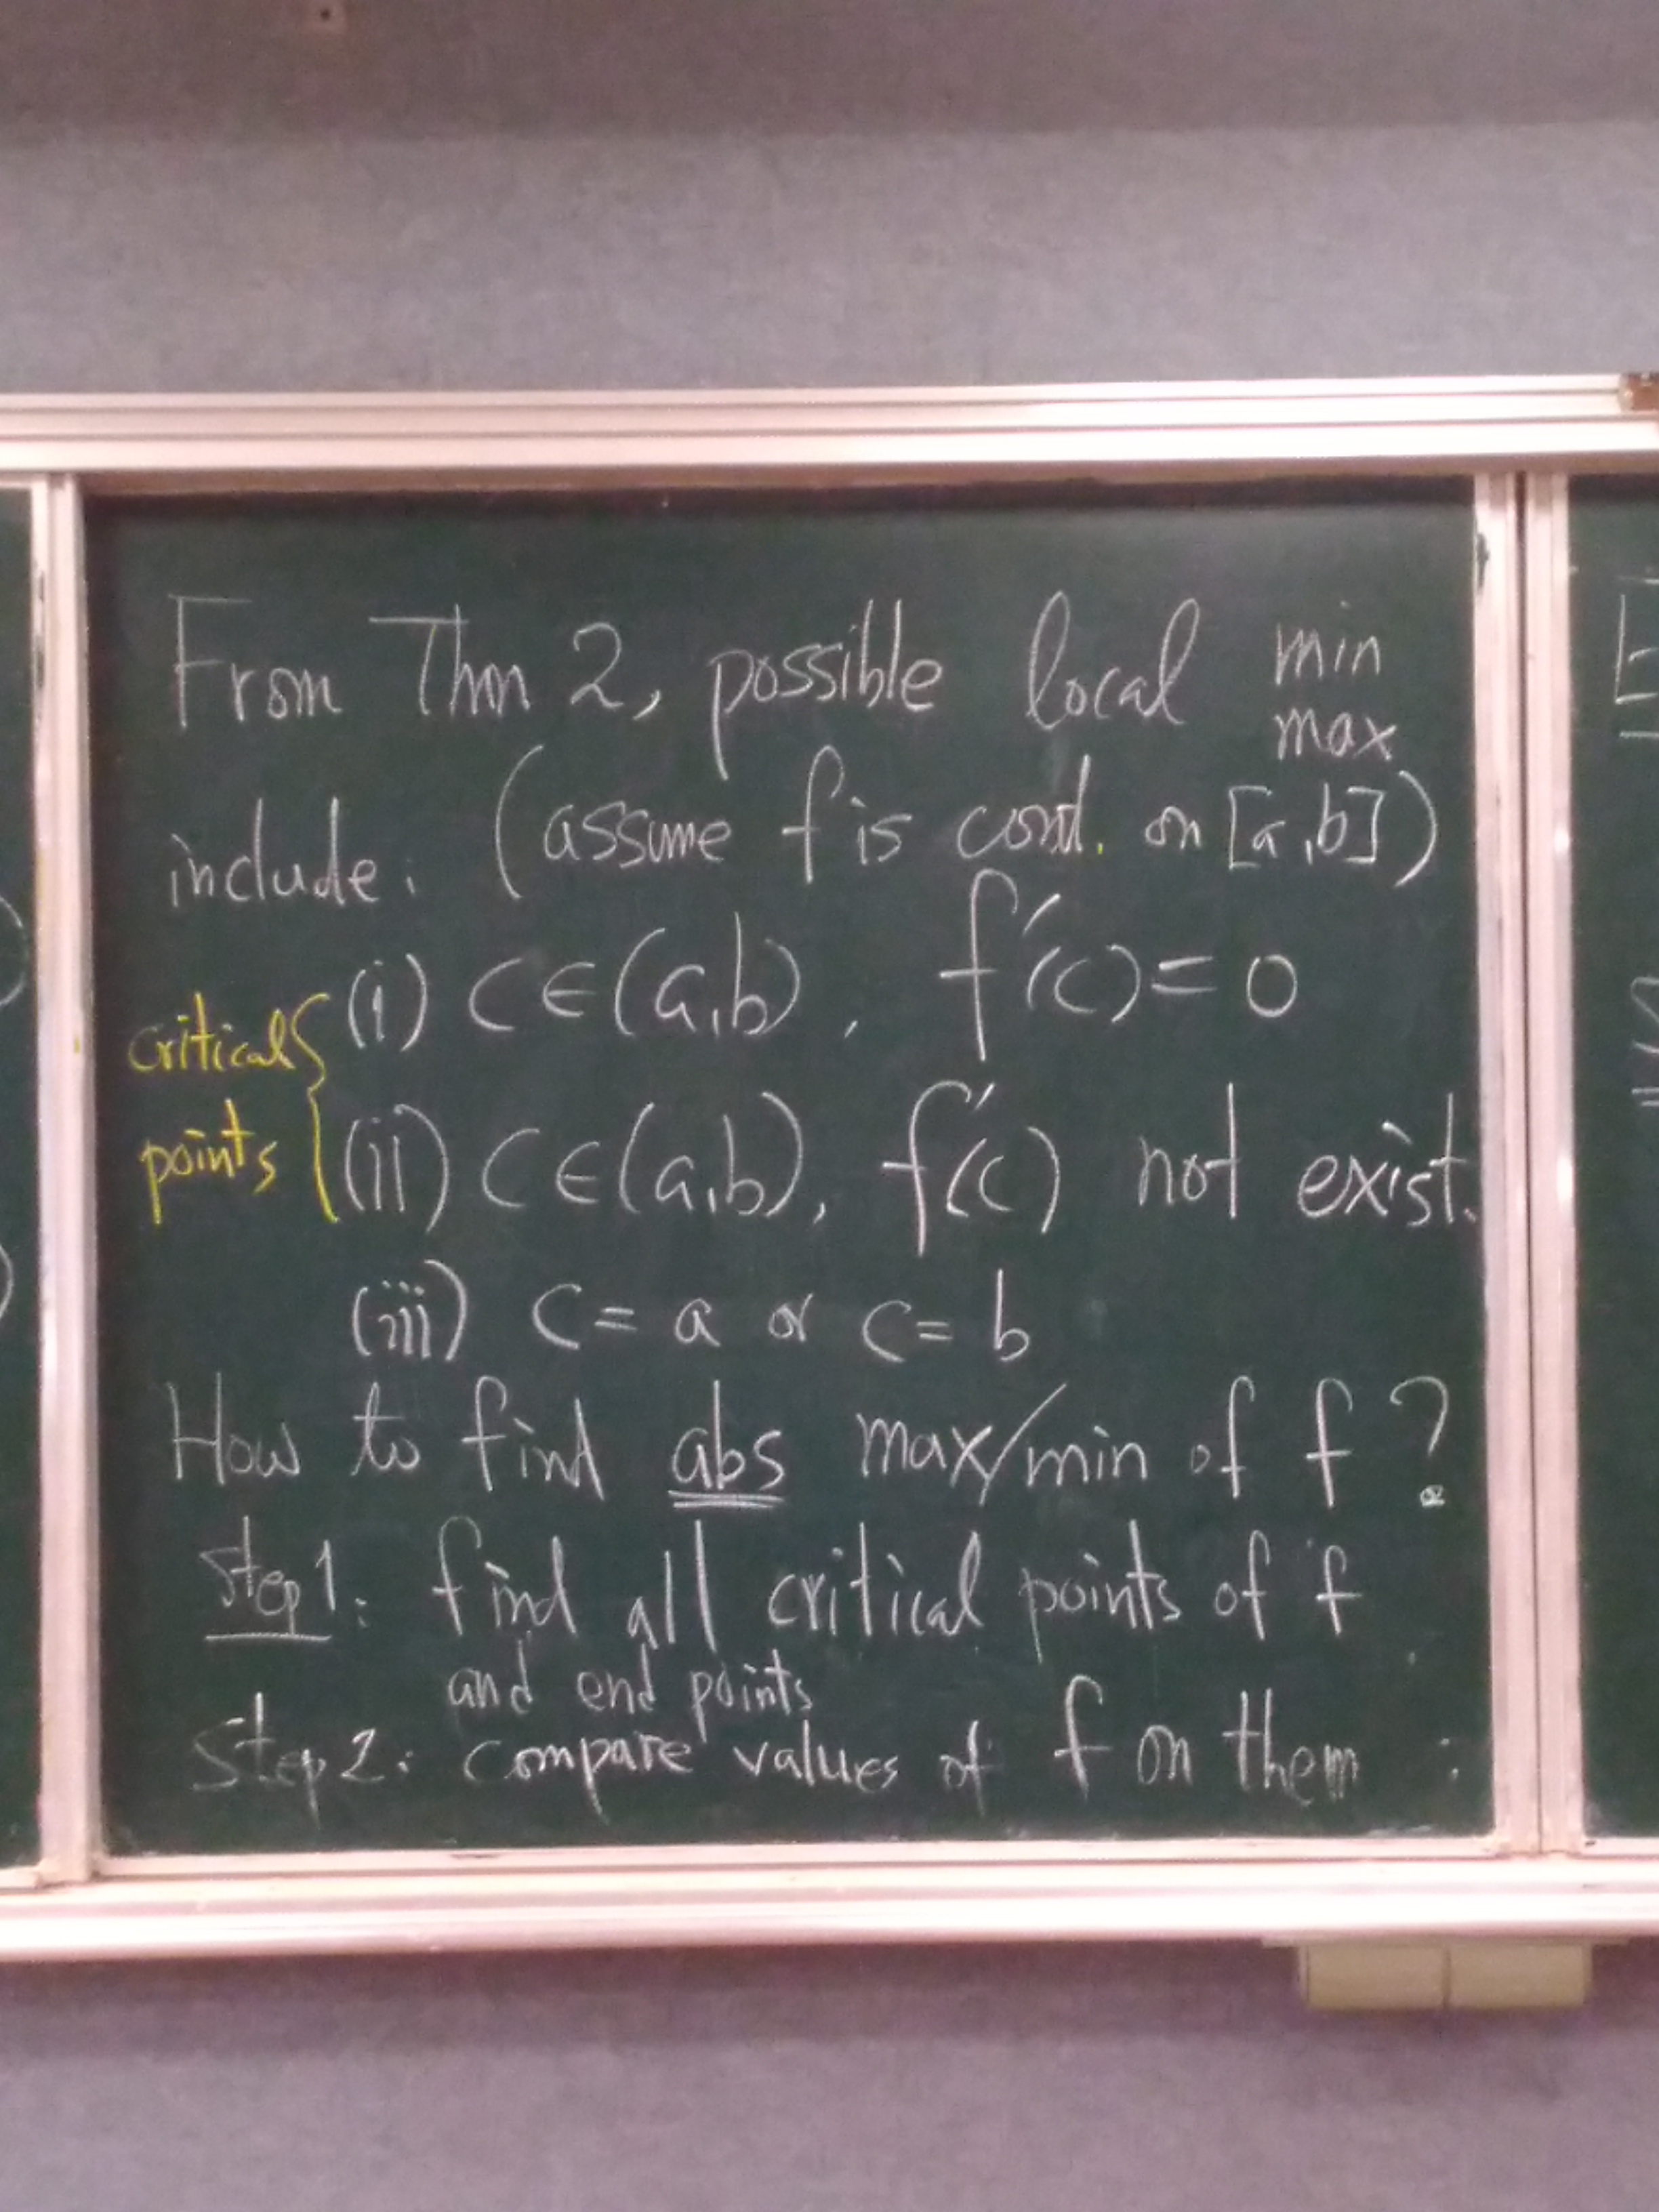 From Thm 2, possible local min
max
include: (assume f is cont. on [a,b])
critical
points
(i) c∈(a,b), f'(c)=0
(ii) c∈(a,b), f'(c) not exist.
(iii) c= a or c= b
How to find abs max/min of f?
Step1: find all critical points of f
and end points
Step2: compare values of f on them